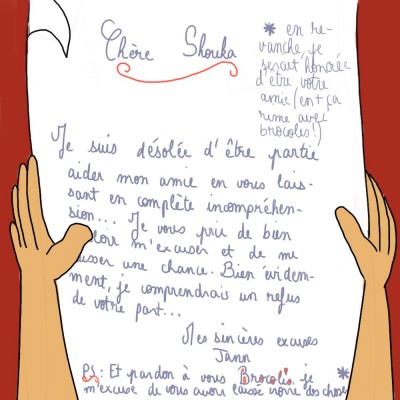 Chère Shouka
* en re-
vanche, je
serait honorée
d'être votre
amie (en + ça
rime avec
brocolis!)
Je suis désolée d'être partie
aider mon amie en vous lais-
sant en complète incompréhen-
sion... Je vous prie de bien
m'excuser et de me
laisser une chance. Bien éviden-
ment, je comprendrais un refus
de votre part...
Mes sincères excuses
Jann
PS: Et pardon à vous Brocolis je *
m'excuse de vous avoir laissé